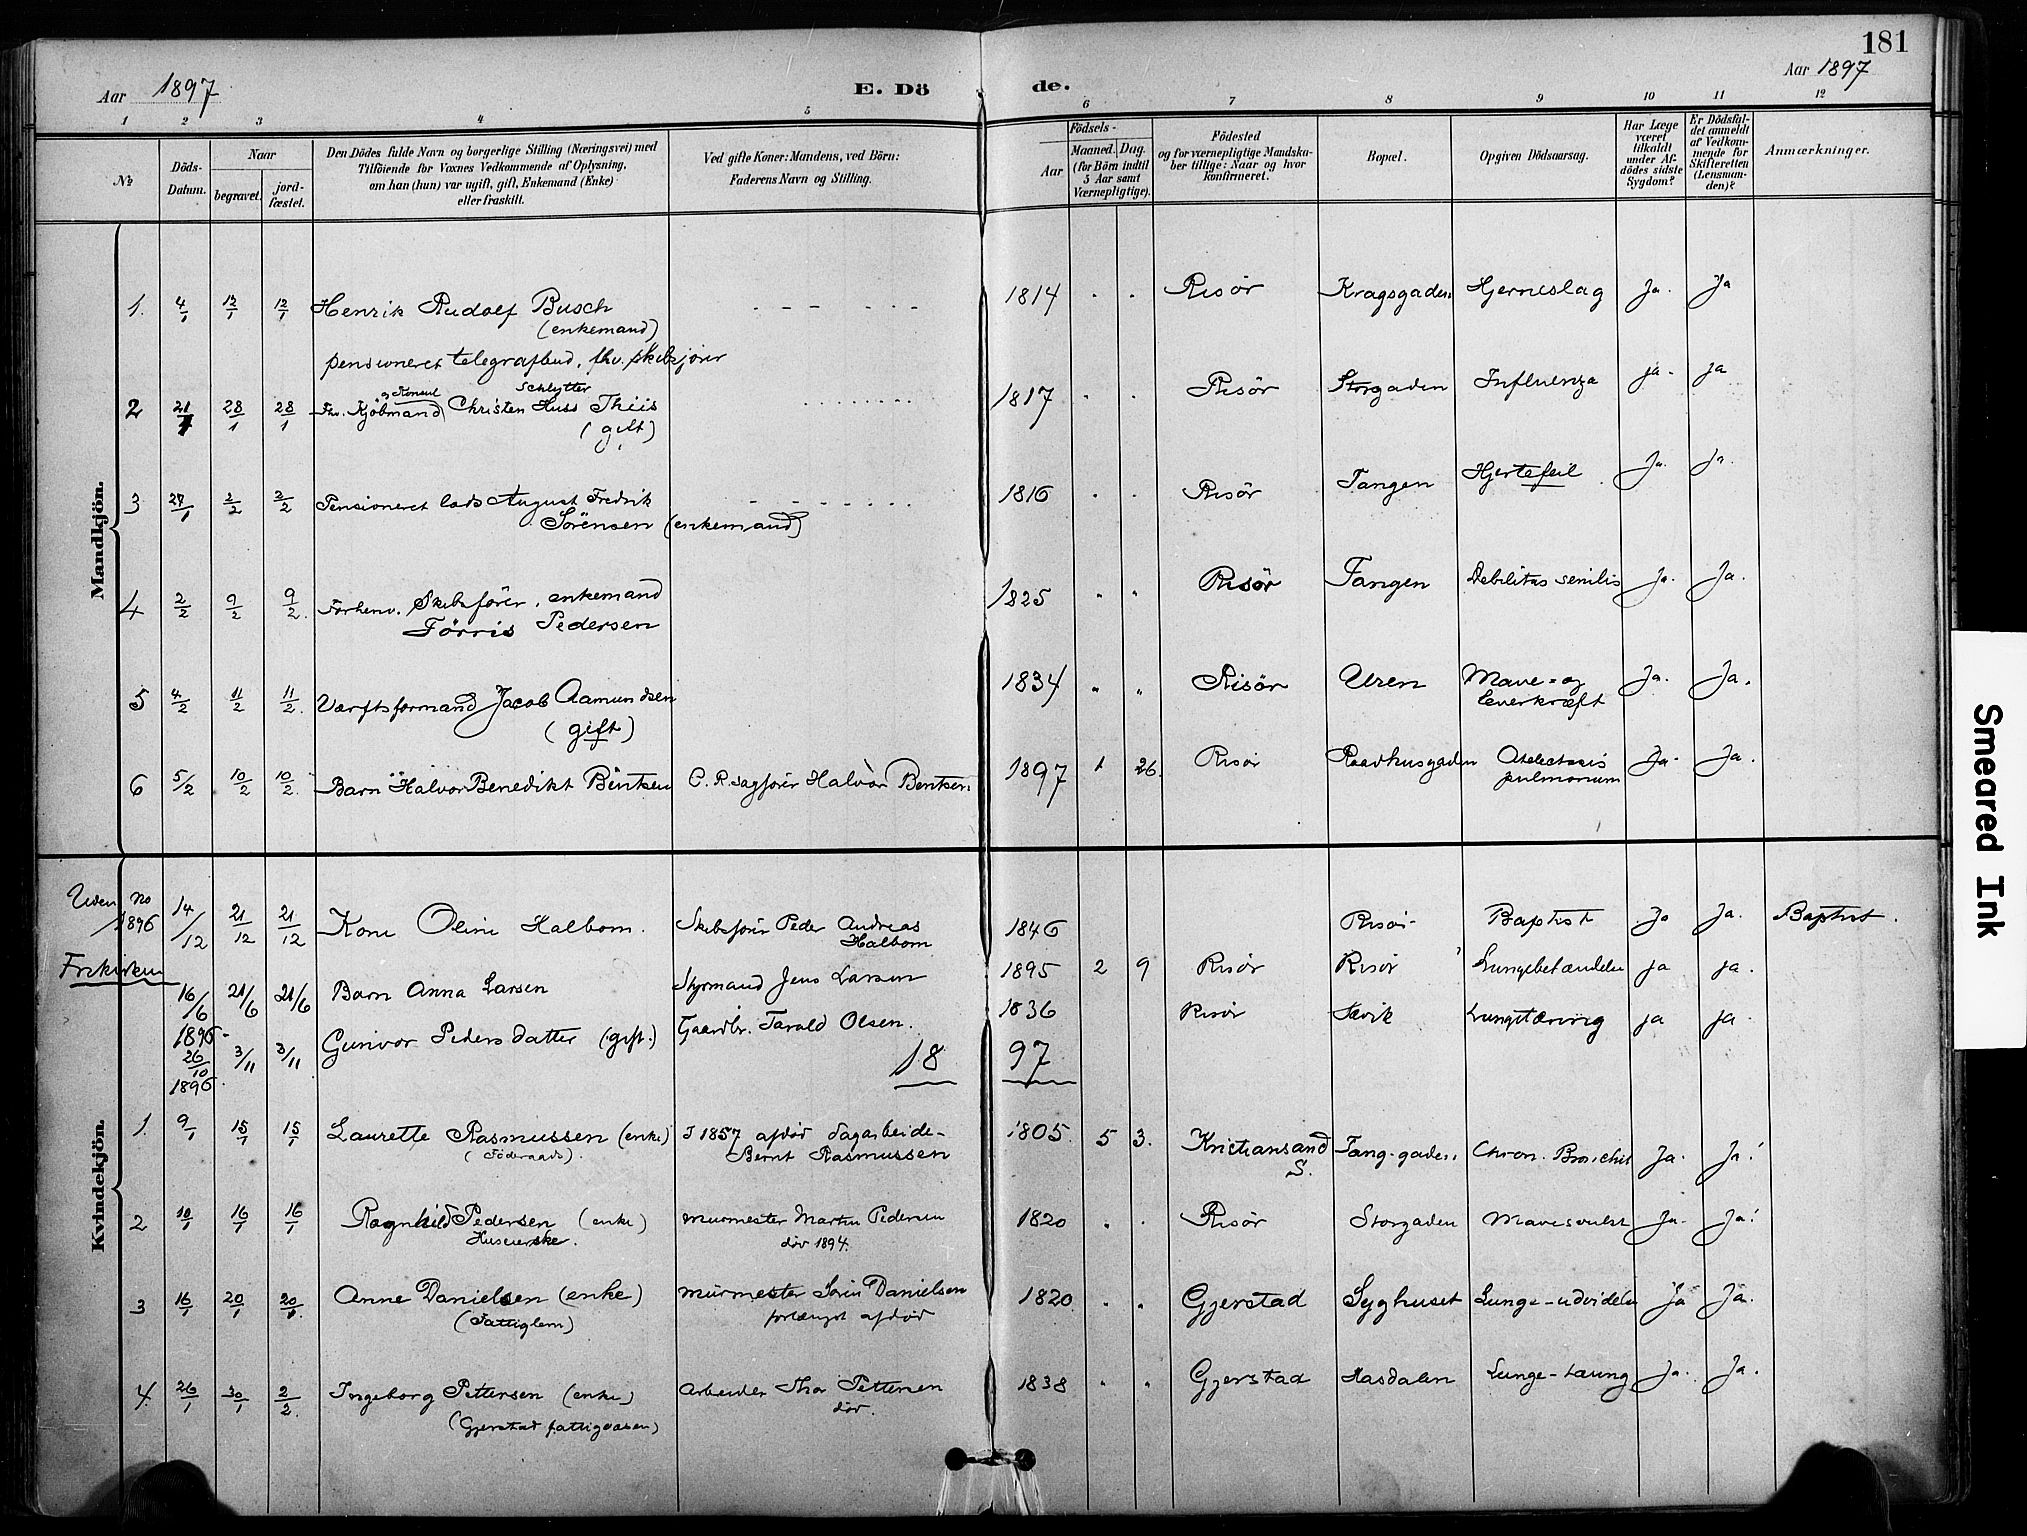 181
Aar 1897 E. Dö de. Aar 1897
1 2 3 4 5 6 7 8 9 10 11 12
№
Döds-Datum.
Naar
begravet.
jord-fæstet.
Den Dödes fulde Navn og borgerlige Stilling (Næringsvei) med
Tilföiende for Voxnes Vedkommende af Oplysning,
om han (hun) var ugift, gift, Enkemand (Enke)
eller fraskilt.
Ved gifte Koner: Mandens, ved Börn:
Faderens Navn og Stilling.
Födsels-
Aar
Maaned. Dag.
(for Börn indtil
5 Aar samt
Værnepligtige).
Födested
og for værnepligtige Mandska-
ber tillige: Naar og hvor
konfirmeret.
Bopæl.
Opgiven Dödsaarsag.
Har Læge
været
tilkaldt
under Af-
dödes sidste
Sygdom?
Er Dödsfal-
det anmeldt
af Vedkom-
mende for
Skifteretten
(Lensman-
den)?
Anmærkninger.
Mandkjön.
1. 4/1 12/1 12/1 Henrik Rudolf Busch 1814 " " Risör Kragsgaden Hjerneslag Ja. Ja
(enkemand)
pensioneret telegrafbud, fhv. skibsfører
og Konsul Schlytter
2 21/1 28/1 28/1 Fhv. Kjöbmand Christen Huss Thiis 1817 " " Risör Storgaden Influenza ja. ja
(gift)
3 27/1 2/2 2/2 Pensioneret lods August Fredrik 1816 " " Risör Tangen Hjertefeil Ja. ja.
Sörensen (enkemand)
4 2/2 9/2 9/2 Forhenv. Skibsförer, enkemand 1825 " " Risör Tangen Debilitas senilis Ja. Ja.
Törris Pedersen
5 4/2 11/2 11/2 Værftsformand Jacob Aamundsen 1834 " " Risör Uren Mave- og Ja. Ja.
leverkræft
(gift)
6 5/2 10/2 10/2 Barn Halvor Benedikt Bentsen O.R.sagförer Halvor Bentsen 1897 1 26. Risör Raadhusgaden Atelectasis Ja. Ja.
pulmonum
Uden No
1896 14/12 21/12 21/12 Kone Oline Halbom. Skibsförer Peder Andreas 1846 Risör Baptist Ja Ja. Baptist.
Halbom
Frikirken
16/6 21/6 21/6 Barn Anna Larsen Styrmand Jens Larsen 1895 2 9 Risör Risör Lungebetændelse ja ja.
1896
26/10 3/11 3/11 Gunvor Pedersdatter (gift.) Gaardbr. Tarald Olsen. 1836 Risör Sævik Lungetæring ja ja.
1896.
18 97
Kvindekjön.
1. 9/1 15/1 15/1 Laurette Rasmussen (enke) I 1857 afdöd dagarbeide- 1805. 5 3. Kristiansand Tang-gaden Chron. Bronchit Ja. Ja.
(Föderaads). Bernt Rasmussen S.
2 10/1 16/1 16/1 Ragnhild Pedersen (enke) murmester Martin Pedersen 1820 " " Risör Storgaden Mavesvulst Ja. Ja.
Huseierske. död 1894.
3 16/1 20/1 20/1 Anne Danielsen (enke) murmester Sören Danielsen 1820. " " Gjerstad Syghuset Lunge-udvidelse Ja Ja.
(Fattiglem) forlængst afdöd
4. 26/1 30/1 2/2 Ingeborg Pettersen (enke) Arbeider Thor Pettersen 1838 " " Gjerstad Hasdalen Lunge-tæring Ja. Ja.
(Gjerstad fattigvæsen) död.
Smeared Ink